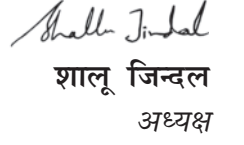 Shallu Jindal
शालू जिन्दल
अध्यक्ष